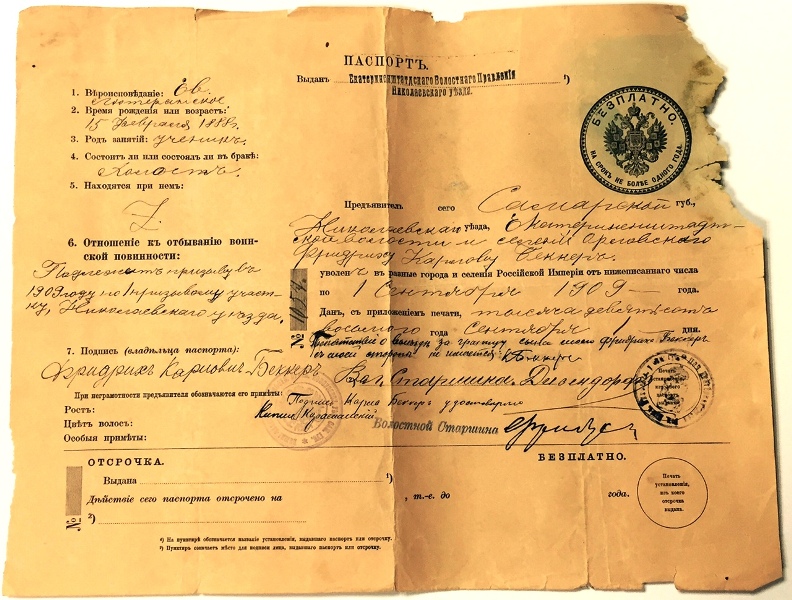 ПАСПОРТЪ.
Выданъ Екатериненштадтскаго Волостнаго Правленія ¹)
Николаевскаго уѣзда.
БЕЗПЛАТНО.
НА СРОКЪ НЕ БОЛѢЕ ОДНОГО ГОДА.
1. Вѣроисповѣданіе: Ев.
лютеранское
2. Время рожденія или возрастъ:
15 Февраля 1888 г.
3. Родъ занятій: ученикъ
4. Состоитъ ли или состоялъ ли въ бракѣ:
Холостъ
5. Находятся при немъ:
6. Отношеніе къ отбыванію воин-
ской повинности:
Подлежитъ призыву въ
1909 году по 1 призывному участ-
ку, Николаевскаго уѣзда.
7. Подпись (владѣльца паспорта):
Фридрихъ Карловичъ Беккеръ
При неграмотности предъявителя обозначаются его примѣты:
Ростъ:
Цвѣтъ волосъ:
Особыя примѣты:
Предъявитель сего Самарской губ.,
Николаевскаго уѣзда, Екатериненштадт-
ской волости и селенія Орловскаго
Фридрихъ Карловъ Беккеръ
уволенъ въ разные города и селенія Россійской Имперіи отъ нижеписаннаго числа
по 1 Сентября 1909 года.
Данъ, съ приложеніемъ печати, тысяча девятьсотъ
восьмого года Сентября 1 дня.
№ 1054
за границу сына моего Фридриха Беккеръ
съ моей стороны не имѣется К. Беккеръ
Вол. Старшина
Подпись Карла Беккеръ удостовѣряю
Волостной Старшина
Печать
ОТСРОЧКА.
БЕЗПЛАТНО.
Выдана ¹)
Дѣйствіе сего паспорта отсрочено на , т.-е. до года.
№ ²)
Печать
установленія,
изъ коего
отсрочка
выдана.
¹) На пунктирѣ обозначается названіе установленія, выдавшаго паспортъ или отсрочку.
²) Пунктиръ означаетъ мѣсто для подписи лица, выдавшаго паспортъ или отсрочку.